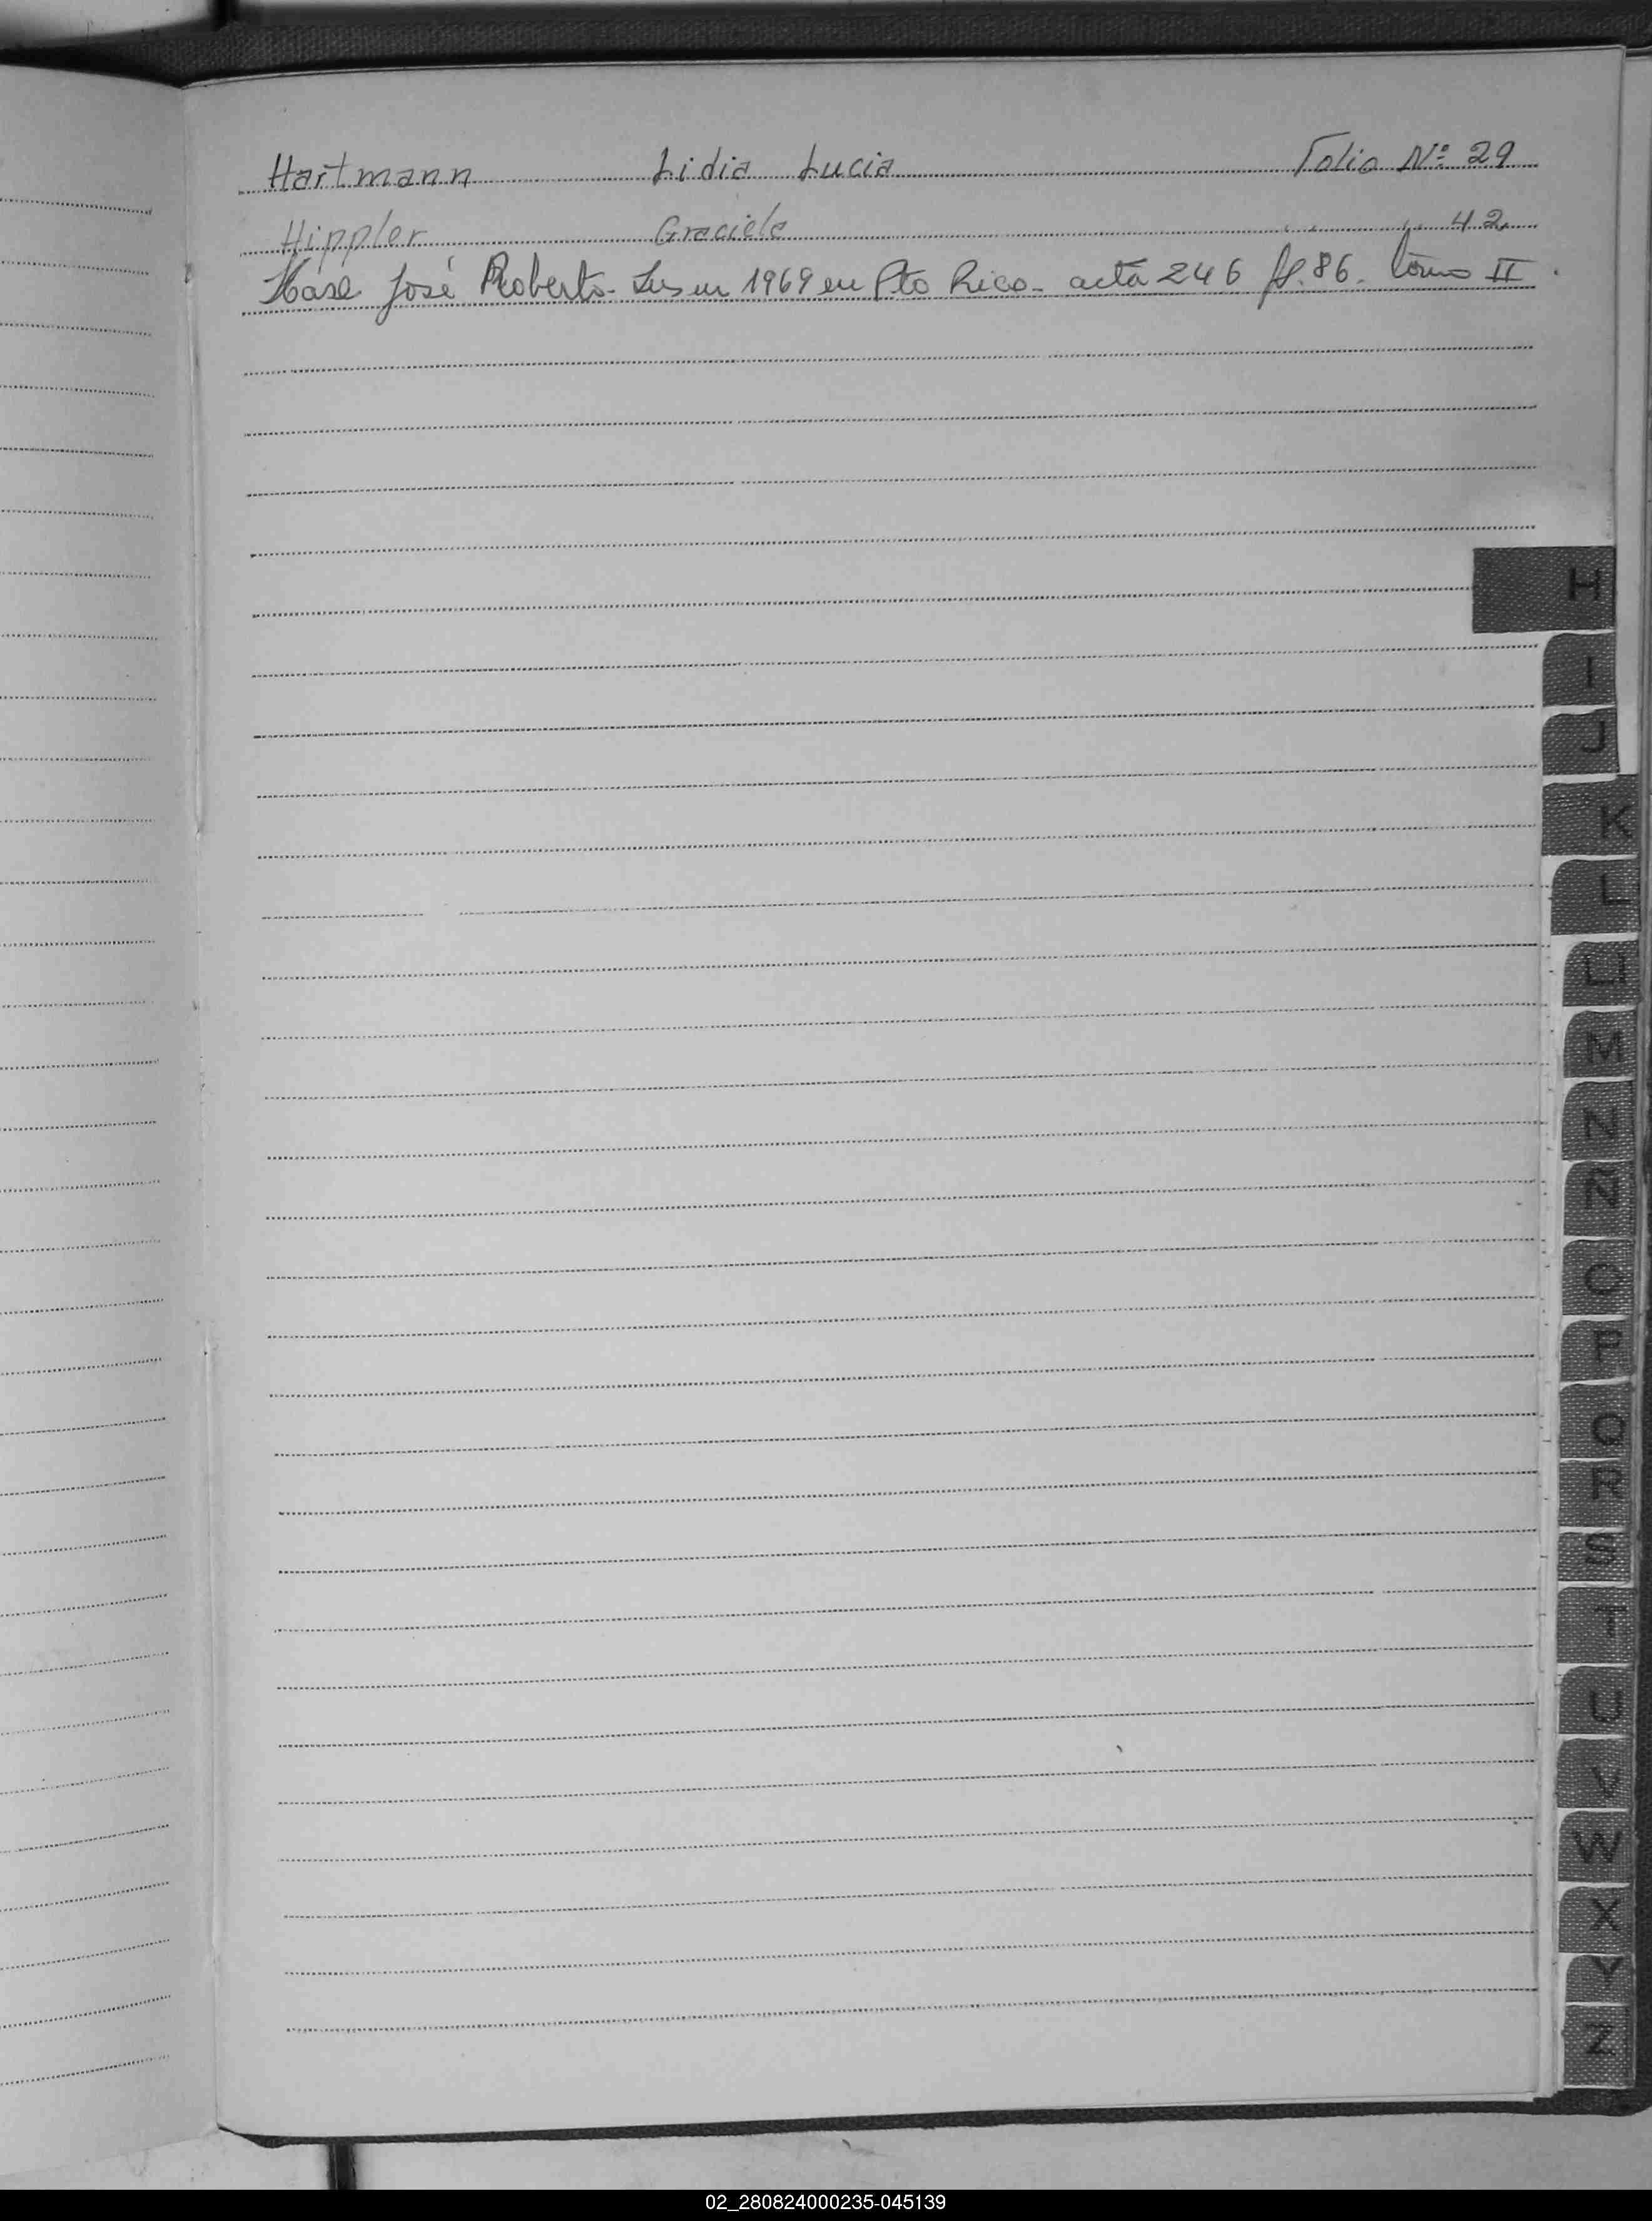 Hartmann Lidia Lucia Folio Nº 29
Hippler Graciela " " 42
Hase José Roberto - en 1969 en Pto Rico - acta 246 fº. 86. tomo II.
H
I
J
K
L
LL
M
N
Ñ
O
P
Q
R
S
T
U
V
W
X
Y
Z
02_280824000235-045139